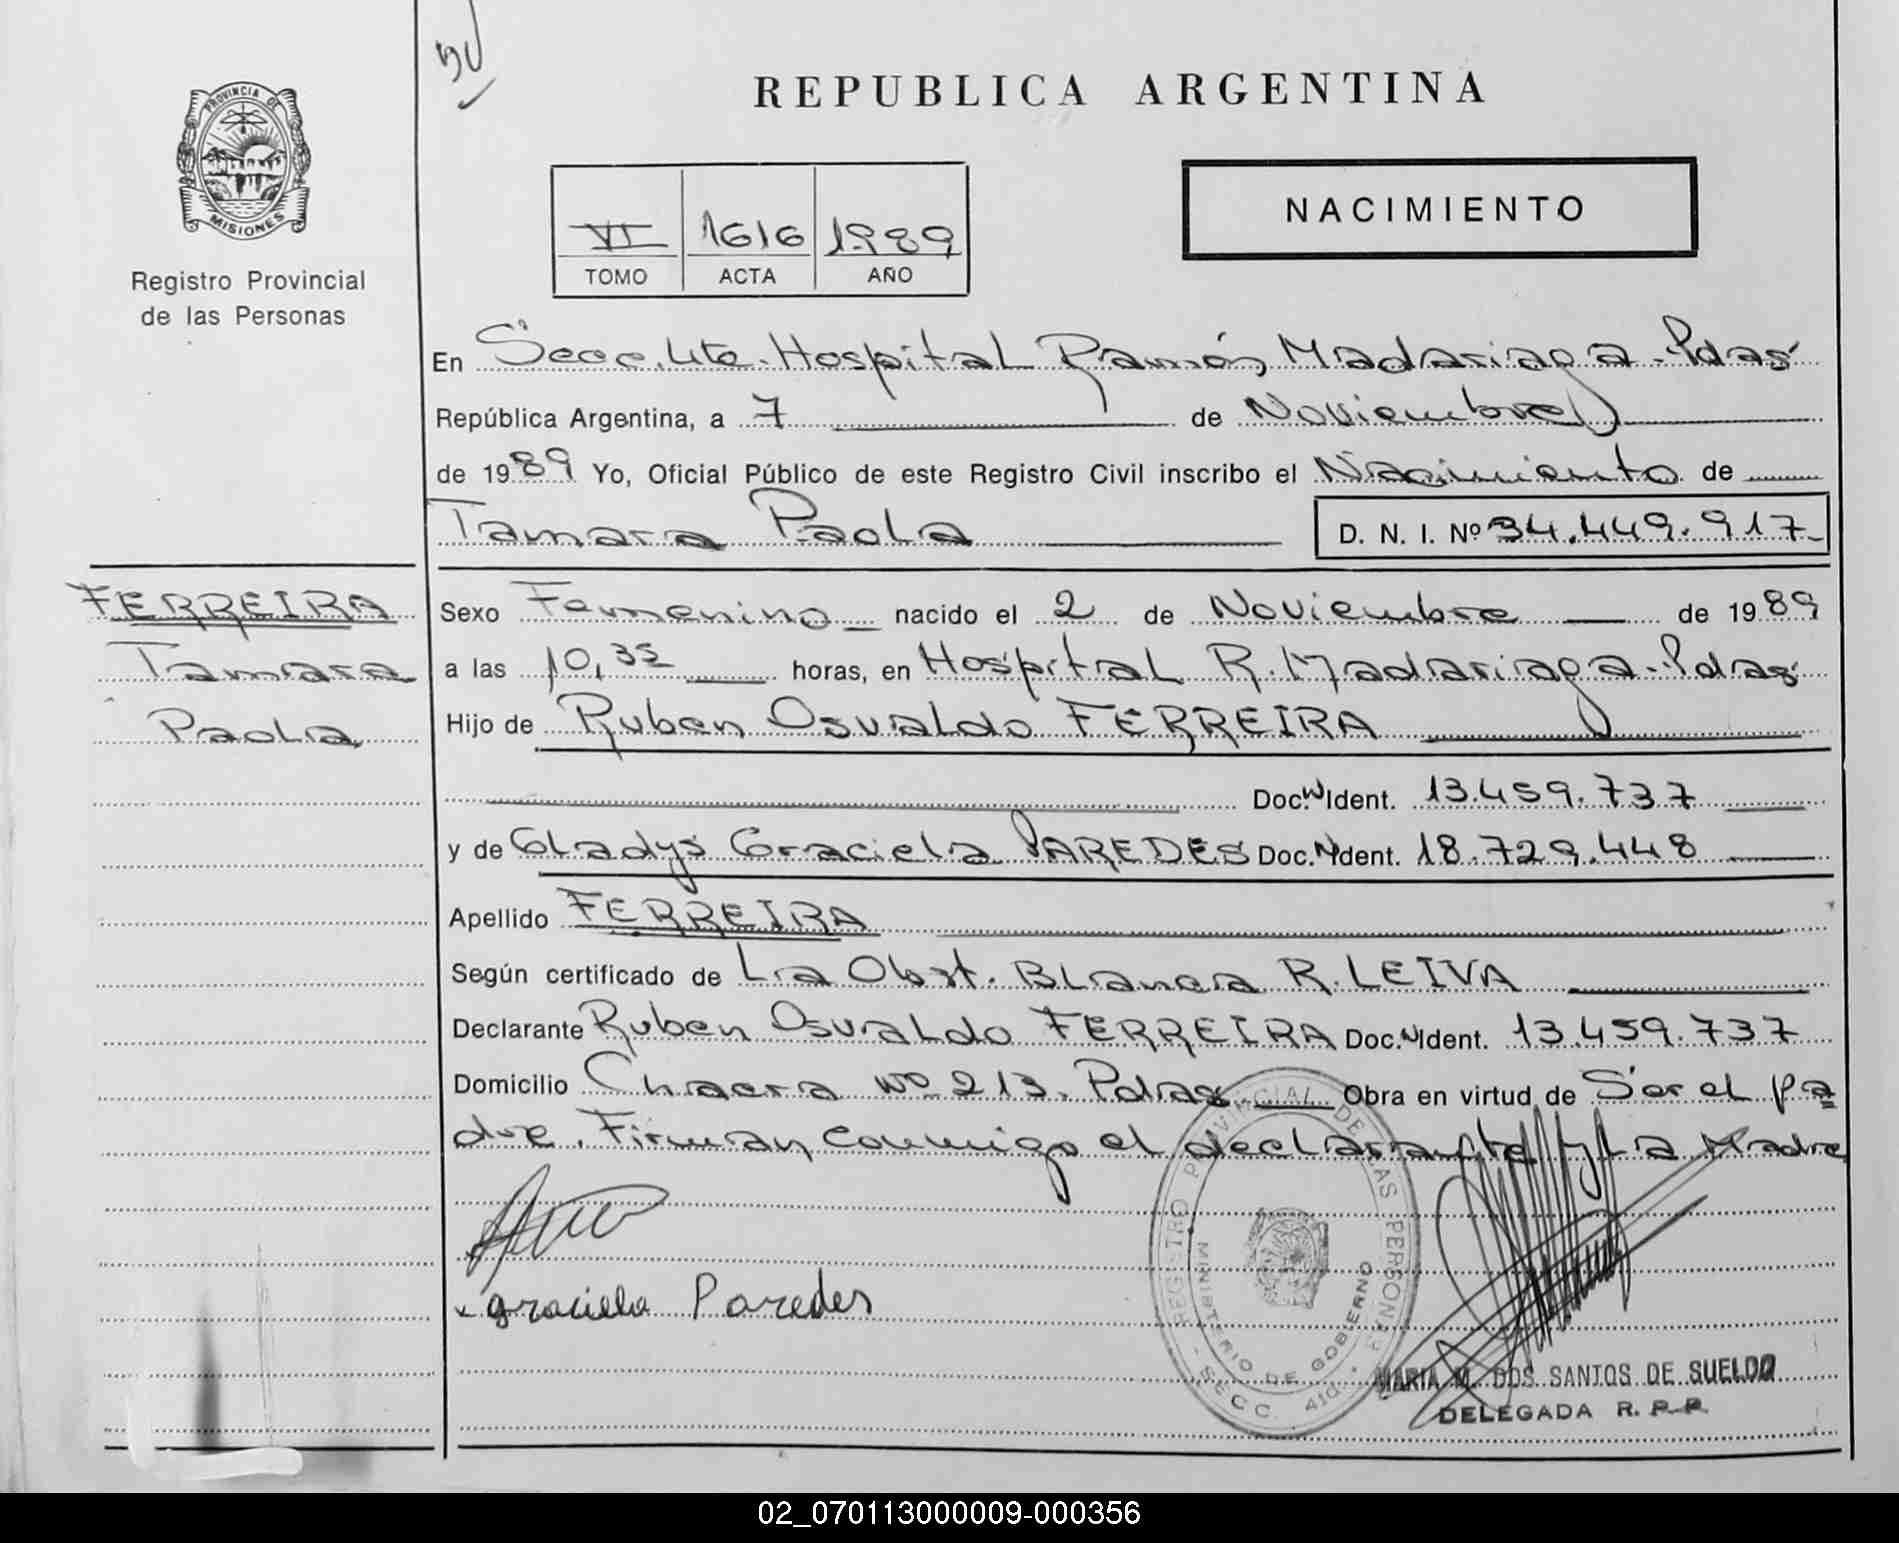 PROVINCIA DE
MISIONES
Registro Provincial
de las Personas
REPUBLICA ARGENTINA
NACIMIENTO
VI 1616 1989
TOMO ACTA AÑO
En Secc. 4ta. Hospital Ramón Madariaga - Pdas
República Argentina, a 7 de Noviembre
de 1989 Yo, Oficial Público de este Registro Civil inscribo el Nacimiento de
Tamara Paola D. N. I. Nº 34.449.917
FERREIRA
Tamara
Paola
Sexo Femenino nacido el 2 de Noviembre de 1989
a las 10,35 horas, en Hospital R. Madariaga - Pdas
Hijo de Ruben Osvaldo FERREIRA
Doc. N Ident. 13.459.737
y de Gladys Graciela PAREDES Doc. N Ident. 18.729.448
Apellido FERREIRA
Según certificado de La Obst. Blanca R. LEIVA
Declarante Ruben Osvaldo FERREIRA Doc. N Ident. 13.459.737
Domicilio Chacra Nº 213. Pdas Obra en virtud de Ser el pa
dre. Firman conmigo el declarante y La Madre
graciela Paredes
REGISTRO PROVINCIAL DE LAS PERSONAS
MINISTERIO DE GOBIERNO
- SECC. 4ta. -
MARIA M. DOS SANTOS DE SUELDO
DELEGADA R. P. P.
02_070113000009-000356